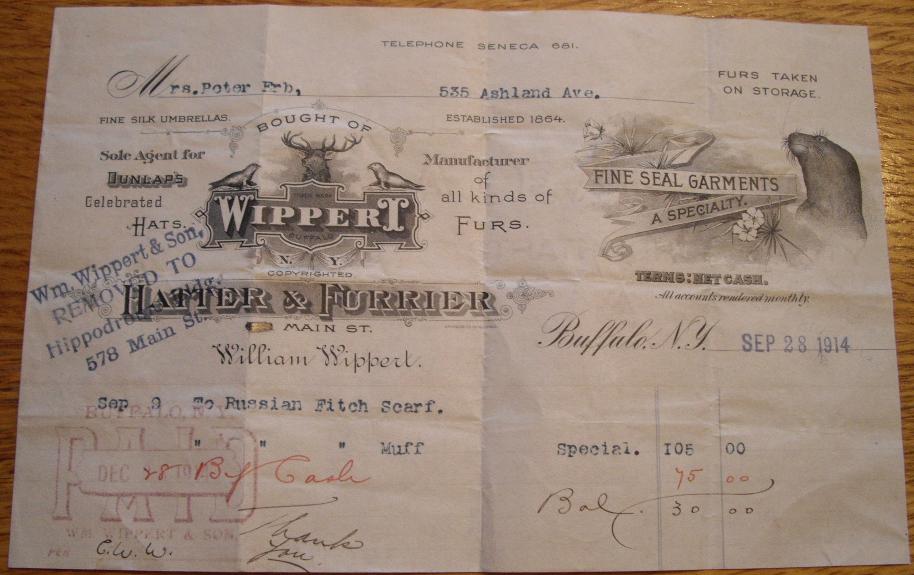 TELEPHONE SENECA 681.
Mrs. Peter Erb,
535 Ashland Ave.
FURS TAKEN
ON STORAGE.
FINE SILK UMBRELLAS.
BOUGHT OF
ESTABLISHED 1864.
Sole Agent for
DUNLAP'S
Celebrated
HATS.
TRADE MARK
WIPPERT
BUFFALO
N. Y.
COPYRIGHTED
Manufacturer
of
all kinds of
FURS.
FINE SEAL GARMENTS
A SPECIALTY.
TERMS: NET CASH.
All accounts rendered monthly.
HATTER & FURRIER
MAIN ST.
William Wippert.
Wm. Wippert & Son,
REMOVED TO
Hippodrome Bldg.
578 Main St.
Buffalo, N.Y. SEP 28 1914
Sep 9 To Russian Fitch Scarf.
" " " Muff Special. 105 00
By Cash 75 00
Bal. 30 00
BUFFALO, N.Y.
PAID
DEC 28 19
WM. WIPPERT & SON
PER C.W.W.
Thank
You